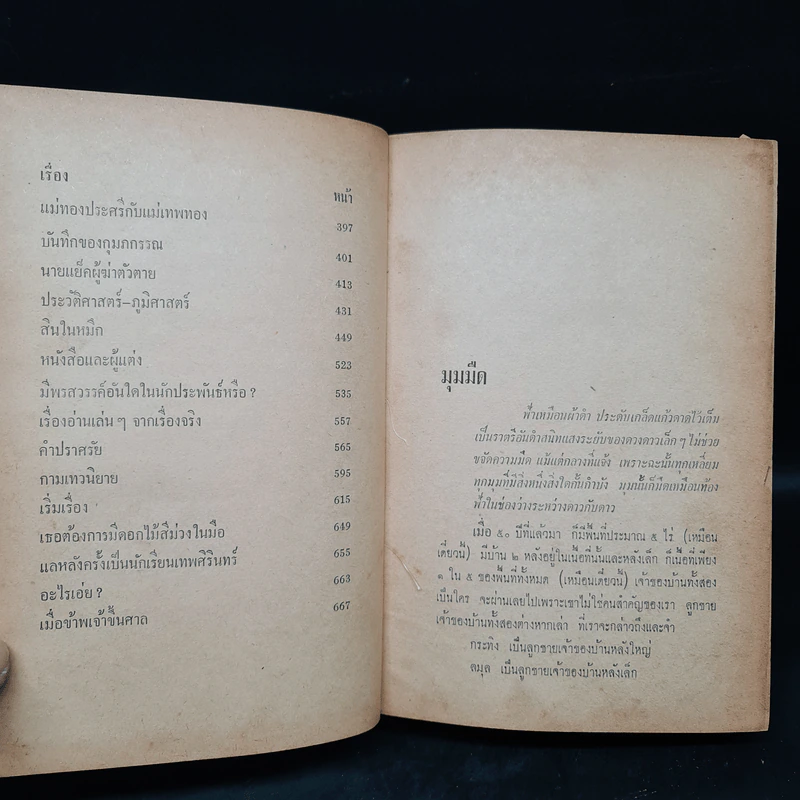 เรื่อง
หน้า
แม่ทองประศรีกับแม่เทพทอง 397
บันทึกของกุมภกรรณ 401
นายแย็คผู้ฆ่าตัวตาย 413
ประวัติศาสตร์–ภูมิศาสตร์ 431
สินในหมึก 449
หนังสือและผู้แต่ง 523
มีพรสวรรค์อันใดในนักประพันธ์หรือ? 535
เรื่องอ่านเล่นๆ จากเรื่องจริง 557
คำปราศรัย 565
กามเทวนิยาย 595
เริ่มเรื่อง 615
เธอต้องการมีดอกไม้สีม่วงในมือ 649
แลหลังครั้งเป็นนักเรียนเทพศิรินทร์ 655
อะไรเอ่ย? 663
เมื่อข้าพเจ้าขึ้นศาล 667
มุมมืด
ฟ้าเหมือนผ้าดำ ประดับเกล็ดแก้วดาดไว้เต็ม
เป็นราตรีอันดำสนิทแสงระยับของดวงดาวเล็กๆ ไม่ช่วย
ขจัดความมืด แม้แต่กลางที่แจ้ง เพราะฉะนั้นทุกเหลี่ยม
ทุกมุมที่มีสิ่งหนึ่งสิ่งใดกั้นกำบัง มุมนั้นก็มืดเหมือนท้อง
ฟ้าในช่องว่างระหว่างดาวกับดาว
เมื่อ ๕๐ ปีที่แล้วมา ก็มีพื้นที่ประมาณ ๕ ไร่ (เหมือน
เดี๋ยวนี้) มีบ้าน ๒ หลังอยู่ในเนื้อที่นั้นและหลังเล็ก ก็เนื้อที่เพียง
๑ ใน ๕ ของพื้นที่ทั้งหมด (เหมือนเดี๋ยวนี้) เจ้าของบ้านทั้งสอง
เป็นใคร จะผ่านเลยไปเพราะเขาไม่ใช่คนสำคัญของเรา ลูกชาย
เจ้าของบ้านทั้งสองต่างหากเล่า ที่เราจะกล่าวถึงและจำ
กระทิง เป็นลูกชายเจ้าของบ้านหลังใหญ่
สมุล เป็นลูกชายเจ้าของบ้านหลังเล็ก